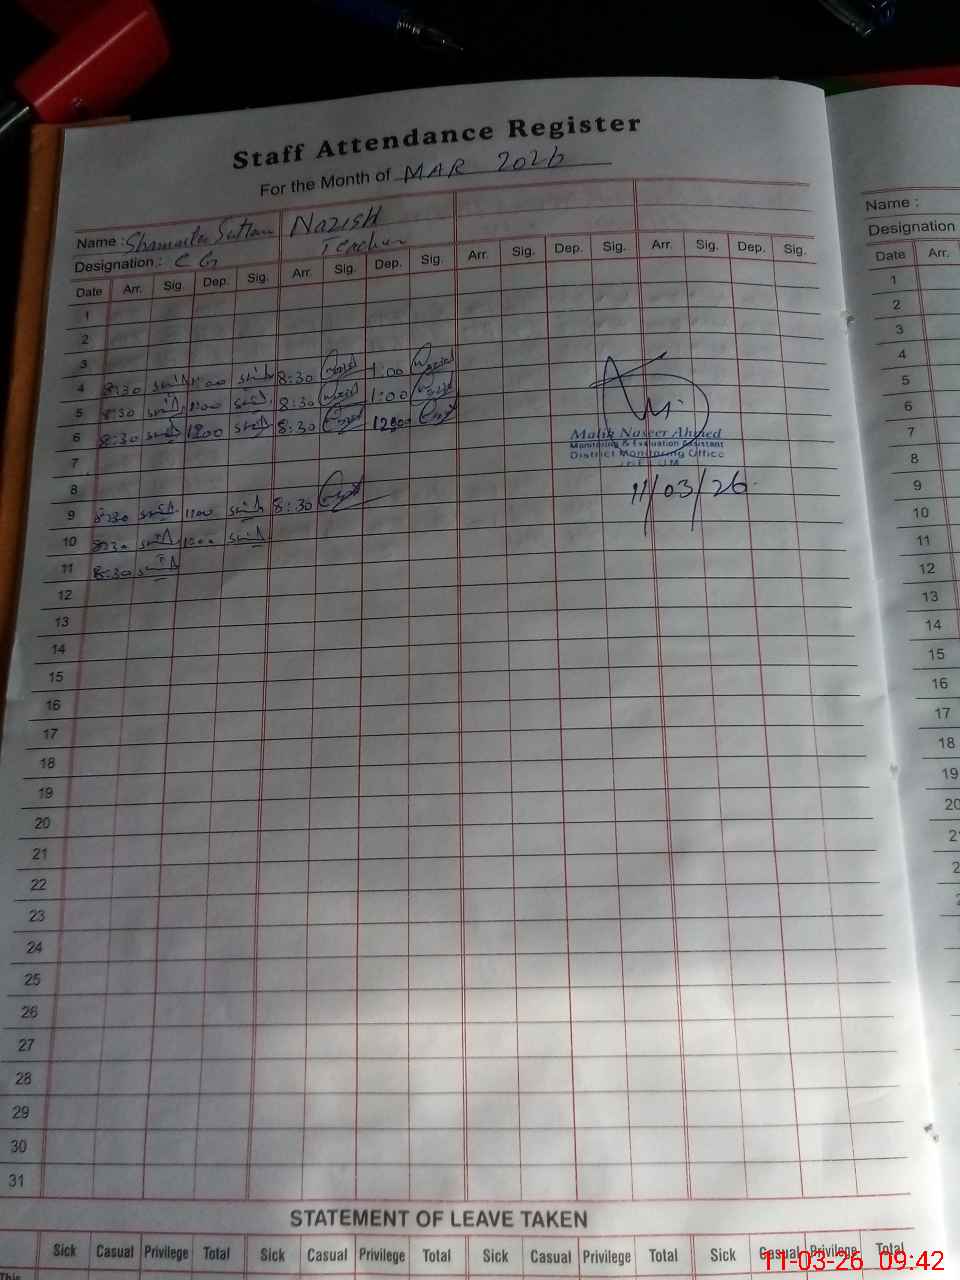 Staff Attendance Register
For the Month of MAR 2026
Name : Sultan NAZISH
Designation : CG Teacher
Date Arr. Sig. Dep. Sig. Arr. Sig. Dep. Sig. Arr. Sig. Dep. Sig. Arr. Sig. Dep. Sig.
1
2
3
4 8:30 8:30 1:00
5 8:30 8:30 1:00
6 8:30 1200 8:30
7
8
9 8:30 8:30
10 8:30
11 8:30
12
13
14
15
16
17
18
19
20
21
22
23
24
25
26
27
28
29
30
31
Malik Naseer Ahmed
Monitoring & Evaluation Assistant
District Monitoring Office
11/03/26
STATEMENT OF LEAVE TAKEN
Sick Casual Privilege Total Sick Casual Privilege Total Sick Casual Privilege Total Sick Casual Privilege Total
This
Name :
Designation
Date Arr.
1
2
3
4
5
6
7
8
9
10
11
12
13
14
15
16
17
18
19
20
11-03-26 09:42